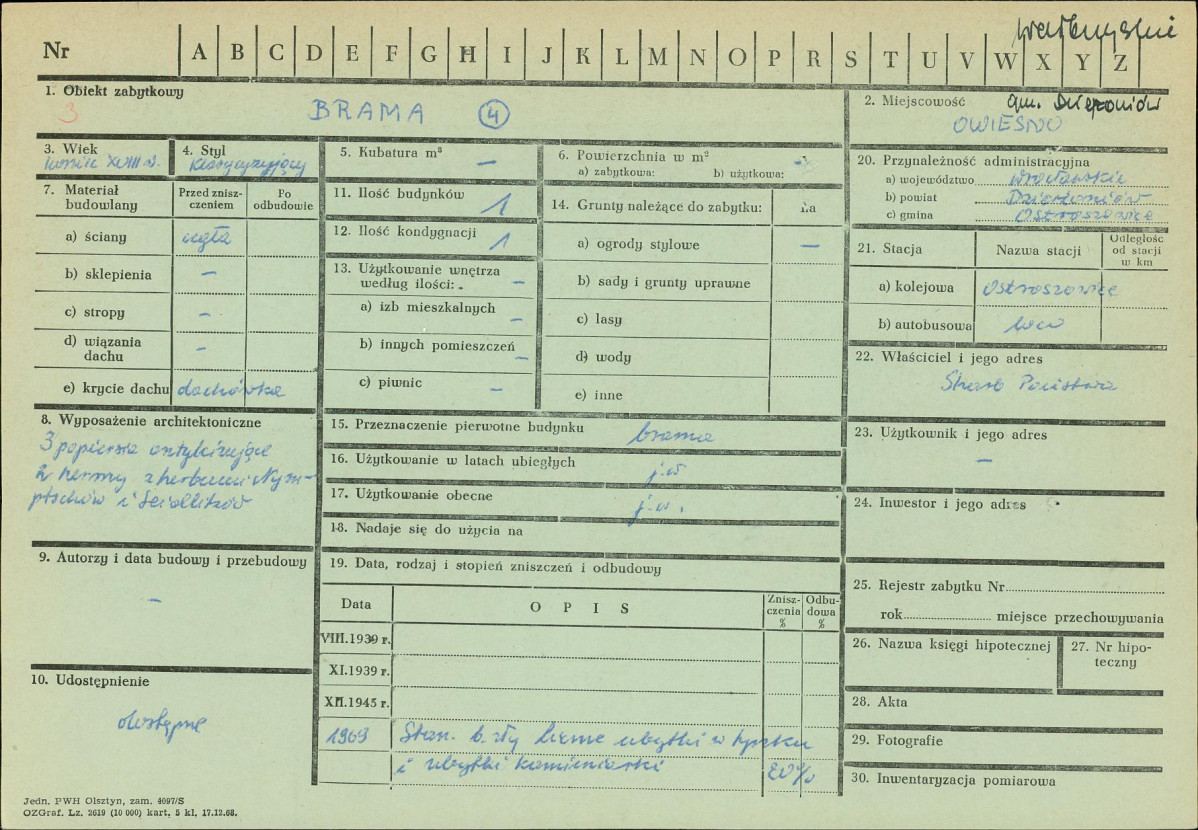 Wałbrzyskie
Nr A B C D E F G H I J K L M N O P R S T U V W X Y Z
1. Obiekt zabytkowy
3
BRAMA 4
2. Miejscowość gm. Dzierżoniów
OWIESNO
3. Wiek
koniec XVIII w.
4. Styl
klasycyzujący
5. Kubatura m³ —
6. Powierzchnia w m² -
a) zabytkowa: b) użytkowa:
7. Materiał budowlany
Przed zniszczeniem
Po odbudowie
a) ściany cegła
b) sklepienia —
c) stropy —
d) wiązania dachu —
e) krycie dachu dachówka
8. Wyposażenie architektoniczne
3 popiersia antykizujące
2 hermy z herbami Nym-
ptschów i Seidlitzów
9. Autorzy i data budowy i przebudowy
—
10. Udostępnienie
dostępne
11. Ilość budynków 1
12. Ilość kondygnacji 1
13. Użytkowanie wnętrza
według ilości: —
a) izb mieszkalnych —
b) innych pomieszczeń —
c) piwnic —
14. Grunty należące do zabytku: ha
a) ogrody stylowe —
b) sady i grunty uprawne
c) lasy
d) wody
e) inne
15. Przeznaczenie pierwotne budynku brama
16. Użytkowanie w latach ubiegłych j.w
17. Użytkowanie obecne j.w.
18. Nadaje się do użycia na
19. Data, rodzaj i stopień zniszczeń i odbudowy
Data OPIS Zniszczenia % Odbudowa %
VIII.1939 r.
XI.1939 r.
XII.1945 r.
1969 Stan b. zły liczne ubytki w tynku
i ubytki kamieniarki 20%
20. Przynależność administracyjna
a) województwo wrocławskie
b) powiat Dzierżoniów
c) gmina Ostroszowice
21. Stacja Nazwa stacji Odległość od stacji w km
a) kolejowa Ostroszowice
b) autobusowa
22. Właściciel i jego adres
Skarb Państwa
23. Użytkownik i jego adres
—
24. Inwestor i jego adres
25. Rejestr zabytku Nr
rok miejsce przechowywania
26. Nazwa księgi hipotecznej
27. Nr hipoteczny
28. Akta
29. Fotografie
30. Inwentaryzacja pomiarowa
Jedn. PWH Olsztyn, zam. 4097/S
OZGraf. Lz. 2619 (10 000) kart. 5 kl, 17.12.68.